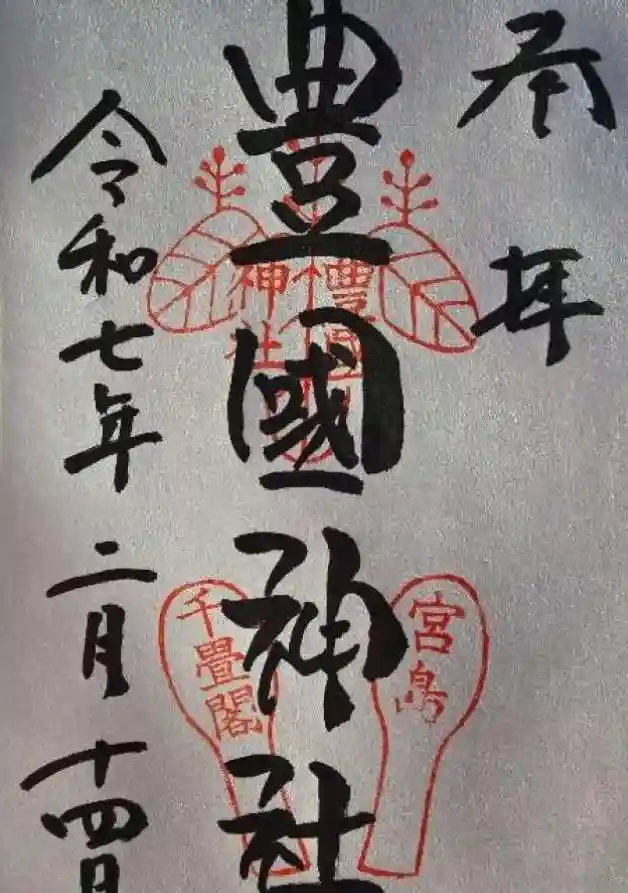 奉拝
豊國神社
豊國
神社
宮島
千畳閣
令和七年二月十四日